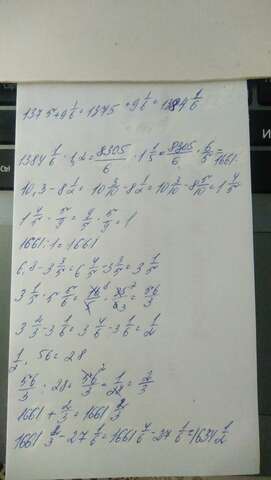 1375+9 1/6=1375+9 1/6=1384 1/6
1384 1/6·1,2=8305/6·1 1/5=8305/6·6/5=1661
10,3-8 1/2=10 3/10-8 1/2=10 3/10-8 5/10=1 4/5
1 4/5·5/9=9/5·5/9=1
1661·1=1661
6,8-3 3/5=6 4/5-3 3/5=3 1/5
3 1/5·5 5/6=16/5·35/6=56/3
3 2/3-3 1/6=3 4/6-3 1/6=1/2
1/2·56=28
56/3:28=56/3·1/28=2/3
1661+2/3=1661 2/3
1661 2/3-27 1/6=1661 4/6-27 1/6=1634 1/2